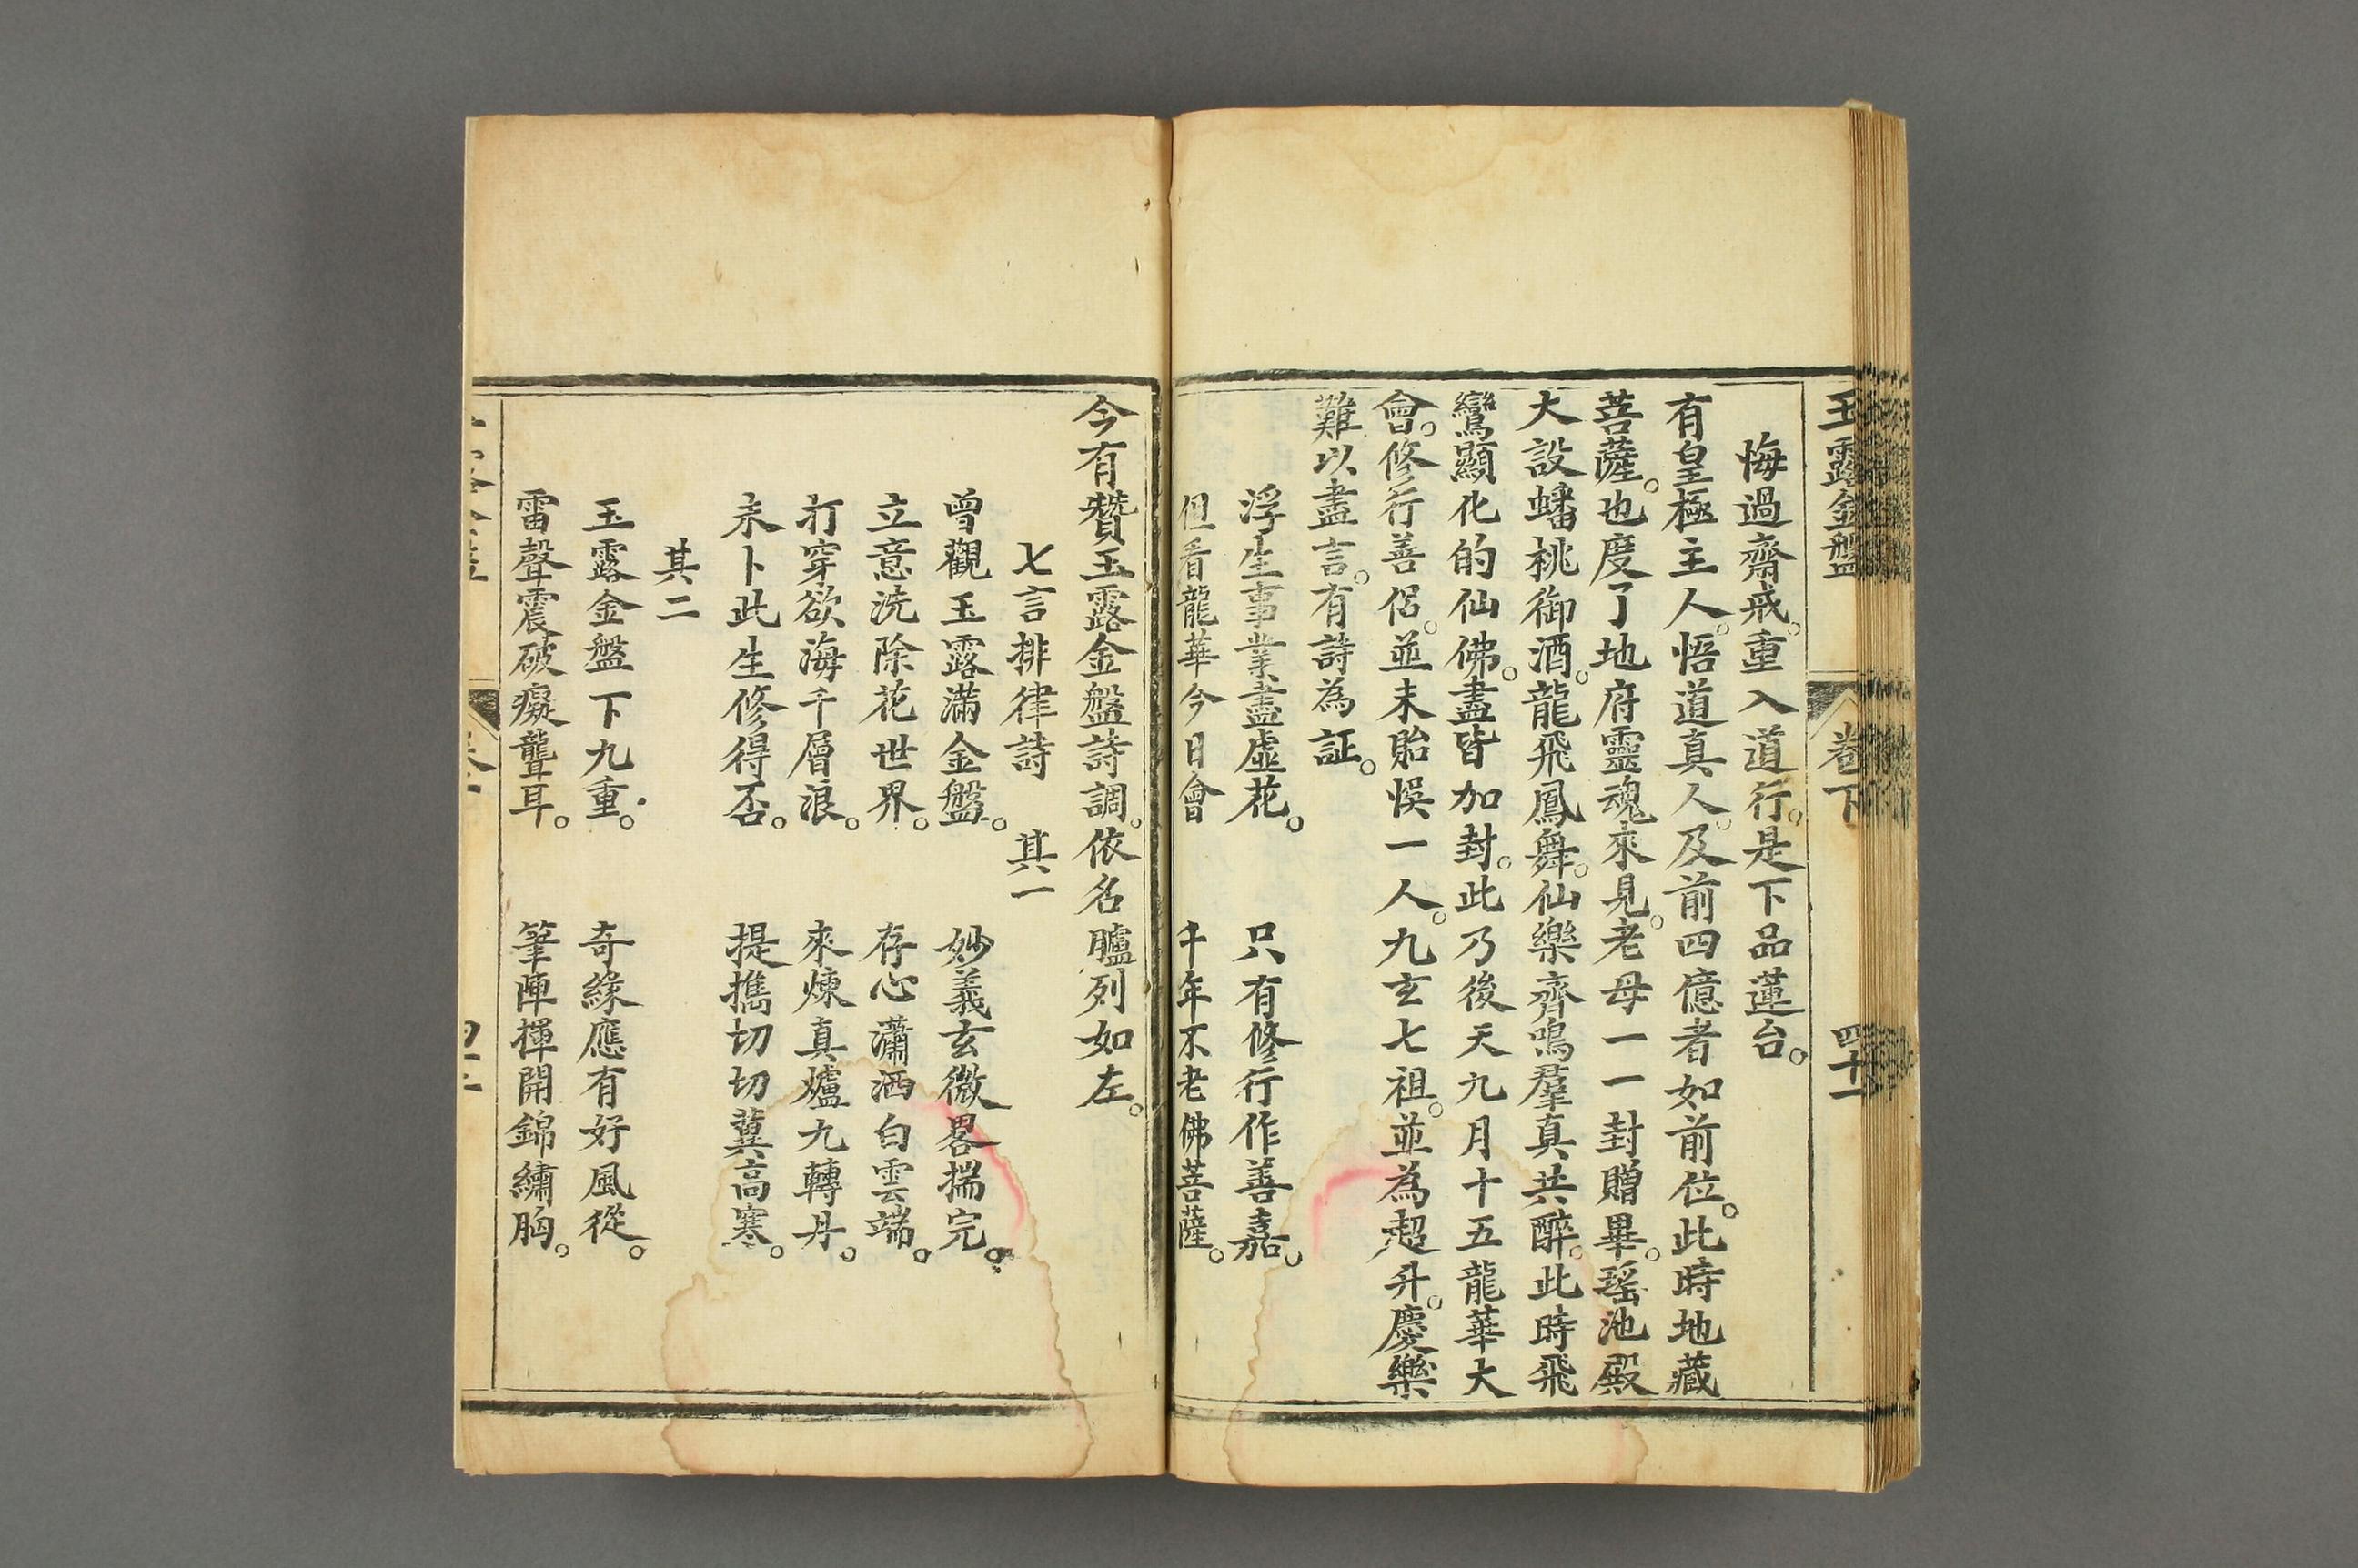 玉露金盤 卷下 四十一
悔過齋戒。重入道行。是下品蓮台。
有皇極主人。悟道真人。及前四億者如前位。此時地藏
菩薩。也度了地府靈魂來見。老母一一封贈畢。瑤池殿
大設蟠桃御酒。龍飛鳳舞。仙樂齊鳴羣真共醉。此時飛
鸞顯化的仙佛。盡皆加封。此乃後天九月十五龍華大
會。修行善侶。並未貽悞一人。九玄七祖。並為超升。慶樂
難以盡言。有詩為証。
浮生事業盡虛花。 只有修行作善嘉。
但看龍華今日會 千年不老佛菩薩。
今有贊玉露金盤詩調。依名臚列如左。
七言排律詩 其一
曾觀玉露滿金盤。 妙義玄微畧揣完。
立意洗除花世界。 存心瀟洒白雲端。
打穿欲海千層浪。 來煉真爐九轉丹。
未卜此生修得否。 提攜切切冀高寒。
其二
玉露金盤下九重。 奇緣應有好風從。
雷聲震破癡聾耳。 筆陣揮開錦繡胸。